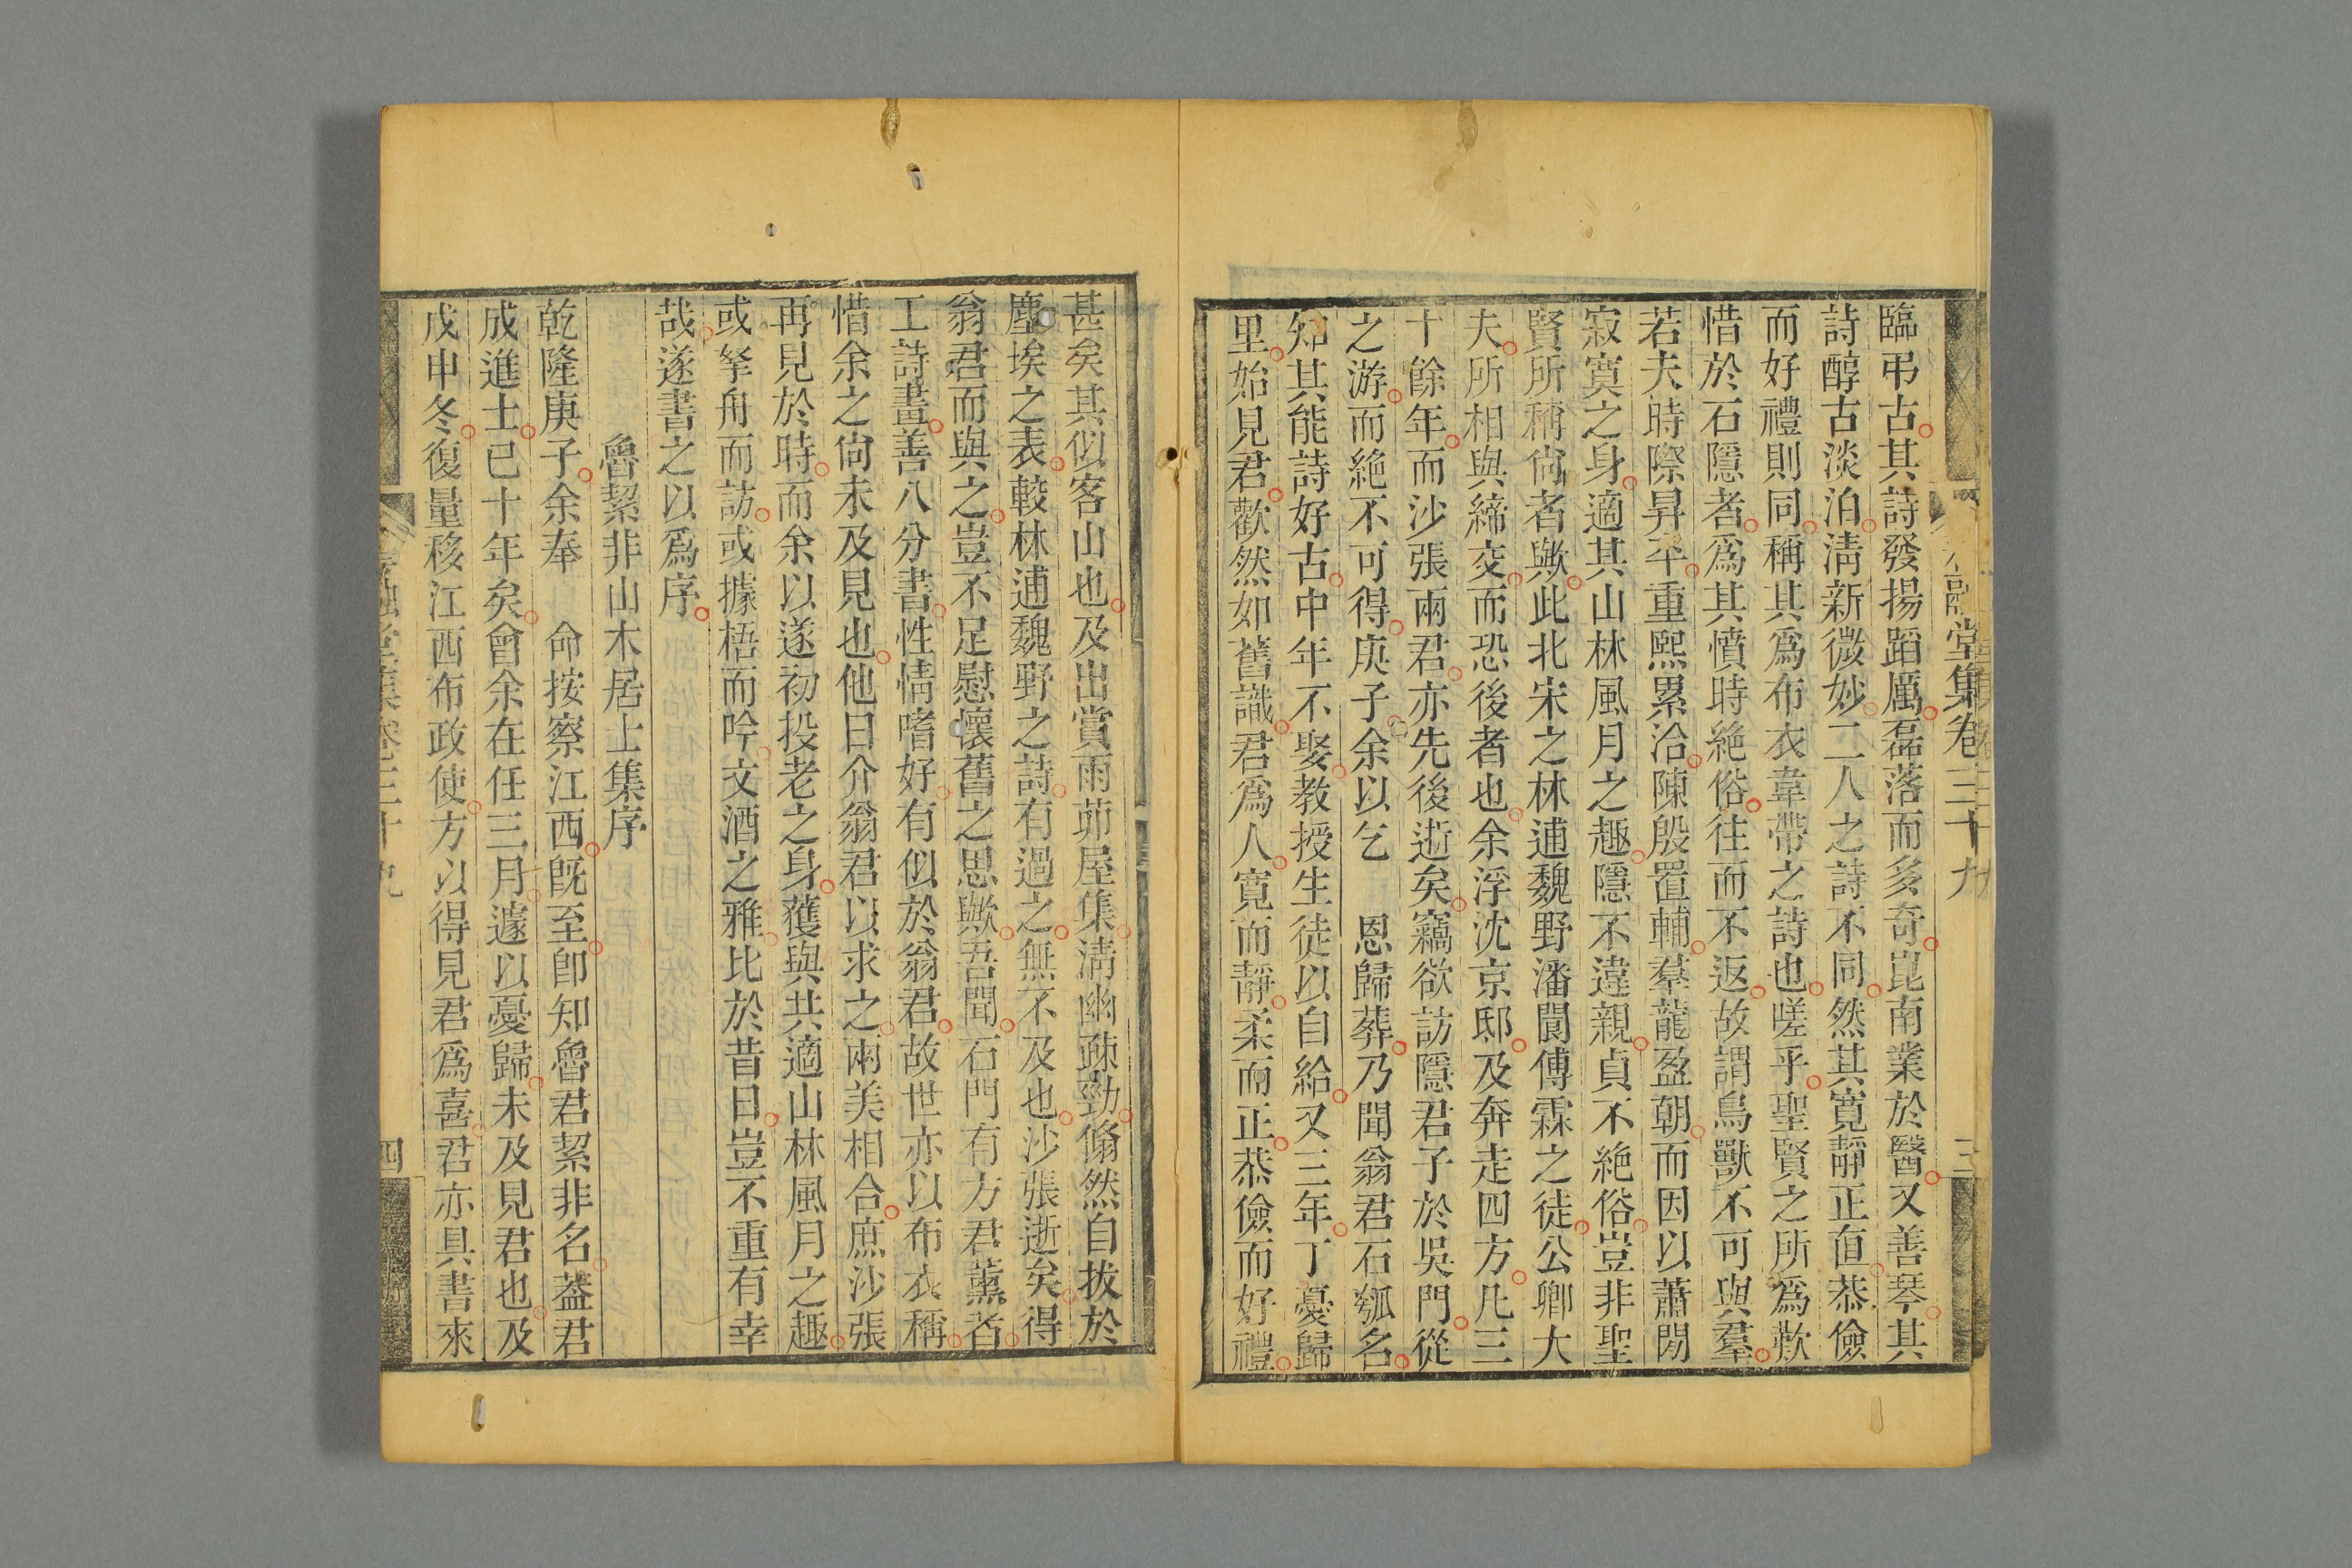 堂集卷三十九
三
臨弔古其詩發揚蹈厲磊落而多奇崑南業於醫又善琴其
詩醇古淡泊淸新微妙二人之詩不同然其寬靜正直恭儉
而好禮則同稱其爲布衣韋帶之詩也嗟乎聖賢之所爲歎
惜於石隱者爲其憤時絕俗往而不返故謂鳥獸不可與羣
若夫時際昇平重熙累洽陳殷置輔羣龍盈朝而因以蕭閒
寂寞之身適其山林風月之趣隱不違親貞不絕俗豈非聖
賢所稱尙者歟此北宋之林逋魏野潘閬傅霖之徒公卿大
夫所相與締交而恐後者也余浮沈京邸及奔走四方凡三
十餘年而沙張兩君亦先後逝矣竊欲訪隱君子於吳門從
之游而絕不可得庚子余以乞　恩歸葬乃聞翁君石瓠名
知其能詩好古中年不娶教授生徒以自給又三年丁憂歸
里始見君歡然如舊識君爲人寬而靜柔而正恭儉而好禮
甚矣其似客山也及出賞雨茆屋集淸幽疎勁翛然自拔於
塵埃之表較林逋魏野之詩有過之無不及也沙張逝矣得
翁君而與之豈不足慰懷舊之思歟吾聞石門有方君薰者
工詩畫善八分書性情嗜好有似於翁君故世亦以布衣稱
惜余之尙未及見也他日介翁君以求之兩美相合庶沙張
再見於時而余以遂初投老之身獲與共適山林風月之趣
或拏舟而訪或據梧而吟文酒之雅比於昔日豈不重有幸
哉遂書之以爲序
魯絜非山木居士集序
乾隆庚子余奉　命按察江西旣至卽知魯君絜非名蓋君
成進士已十年矣會余在任三月遽以憂歸未及見君也及
戊申冬復量移江西布政使方以得見君爲喜君亦具書來
堂集卷三十九
四